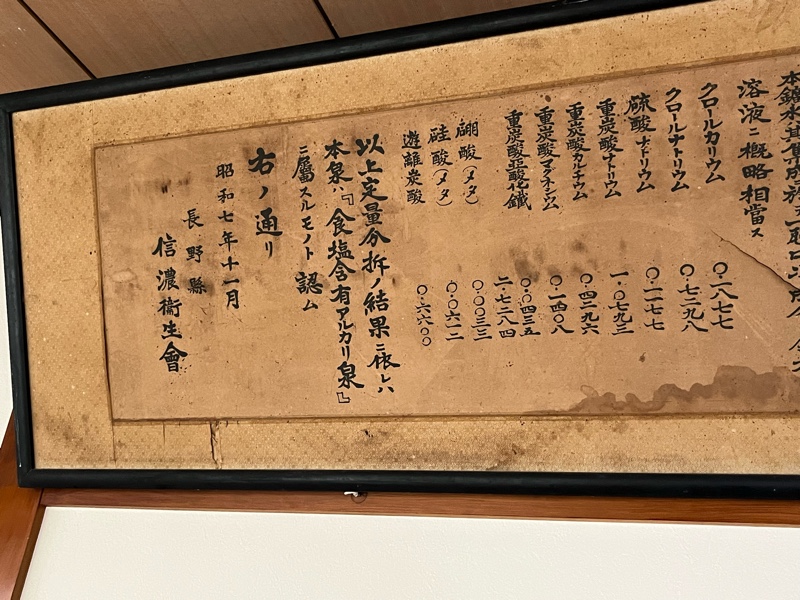 本鑛水
溶液ニ概略相當ス
クロールカリウム 〇.一八七七
クロールナトリウム 〇.七二九八
硫酸ナトリウム 〇.一一七七
重炭酸ナトリウム 一.〇七九三
重炭酸カルチウム 〇.四二九六
重炭酸マグネシウム 〇.一四〇八
重炭酸亜酸化鐵 〇.〇四三五
二.七二八四
硼酸(メタ) 〇.〇〇三三
硅酸(メタ) 〇.〇六一二
遊離炭酸 〇.六六〇〇
以上定量分拆ノ結果ニ依レハ
本泉ハ『食塩含有アルカリ泉』
ニ屬スルモノト認ム
右ノ通リ
昭和七年十一月
長野縣
信濃衛生會